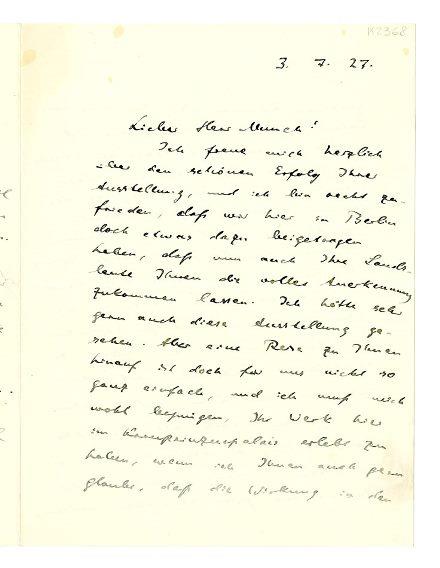 K2368
3. 7. 27.
Lieber Herr Munch!
Ich freue mich herzlich
über den schönen Erfolg Ihrer
Ausstellung, und ich bin recht zu-
frieden, daß wir hier in Berlin
doch etwas dazu beigetragen
haben, daß nun auch Ihre Lands-
leute Ihnen die volle Anerkennung
zukommen lassen. Ich hätte sehr
gern auch diese Ausstellung ge-
sehen. Aber eine Reise zu Ihnen
hinauf ist doch für uns nicht so
ganz einfach, und ich muß mich
wohl begnügen, Ihr Werk hier
im Kronprinzenpalais erlebt zu
haben, wenn ich Ihnen auch gern
glaube, daß die Wirkung in den